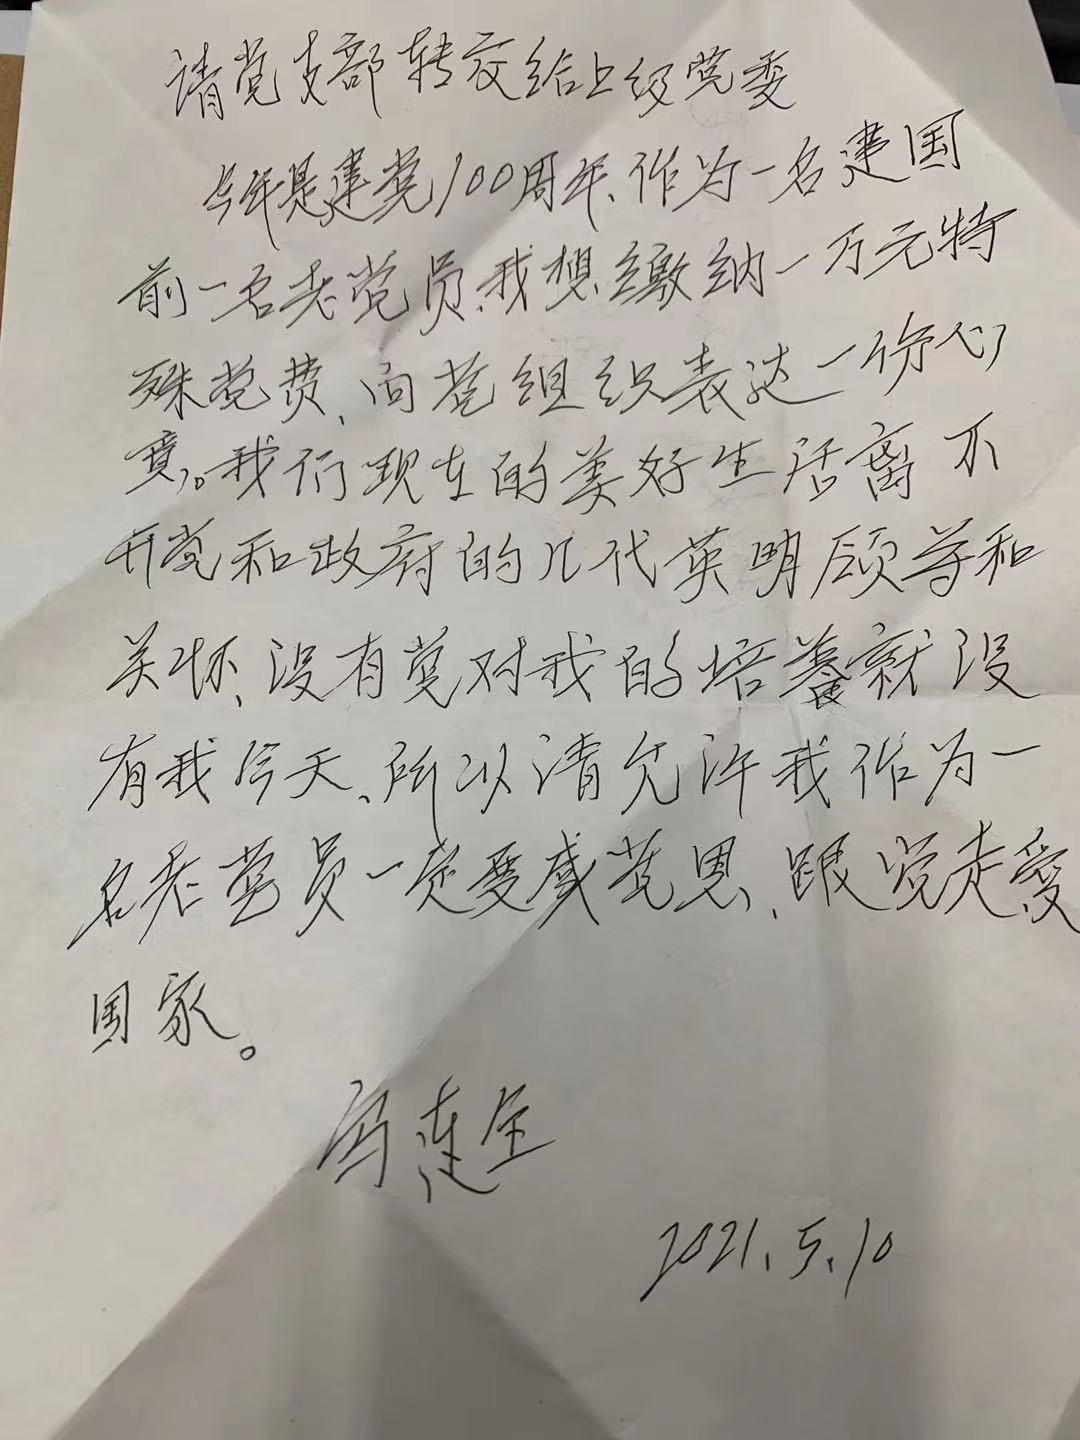 请党支部转交给上级党委
今年是建党100周年、作为一名建国
前一名老党员、我想缴纳一万元特
殊党费、向党组织表达一份心
意。我们现在的美好生活离不
开党和政府的几代英明领导和
关怀、没有党对我的培养就没
有我今天、所以请允许我作为一
名老党员一定要感党恩、跟党走、爱
国家。
冯莲全
2021.5.10